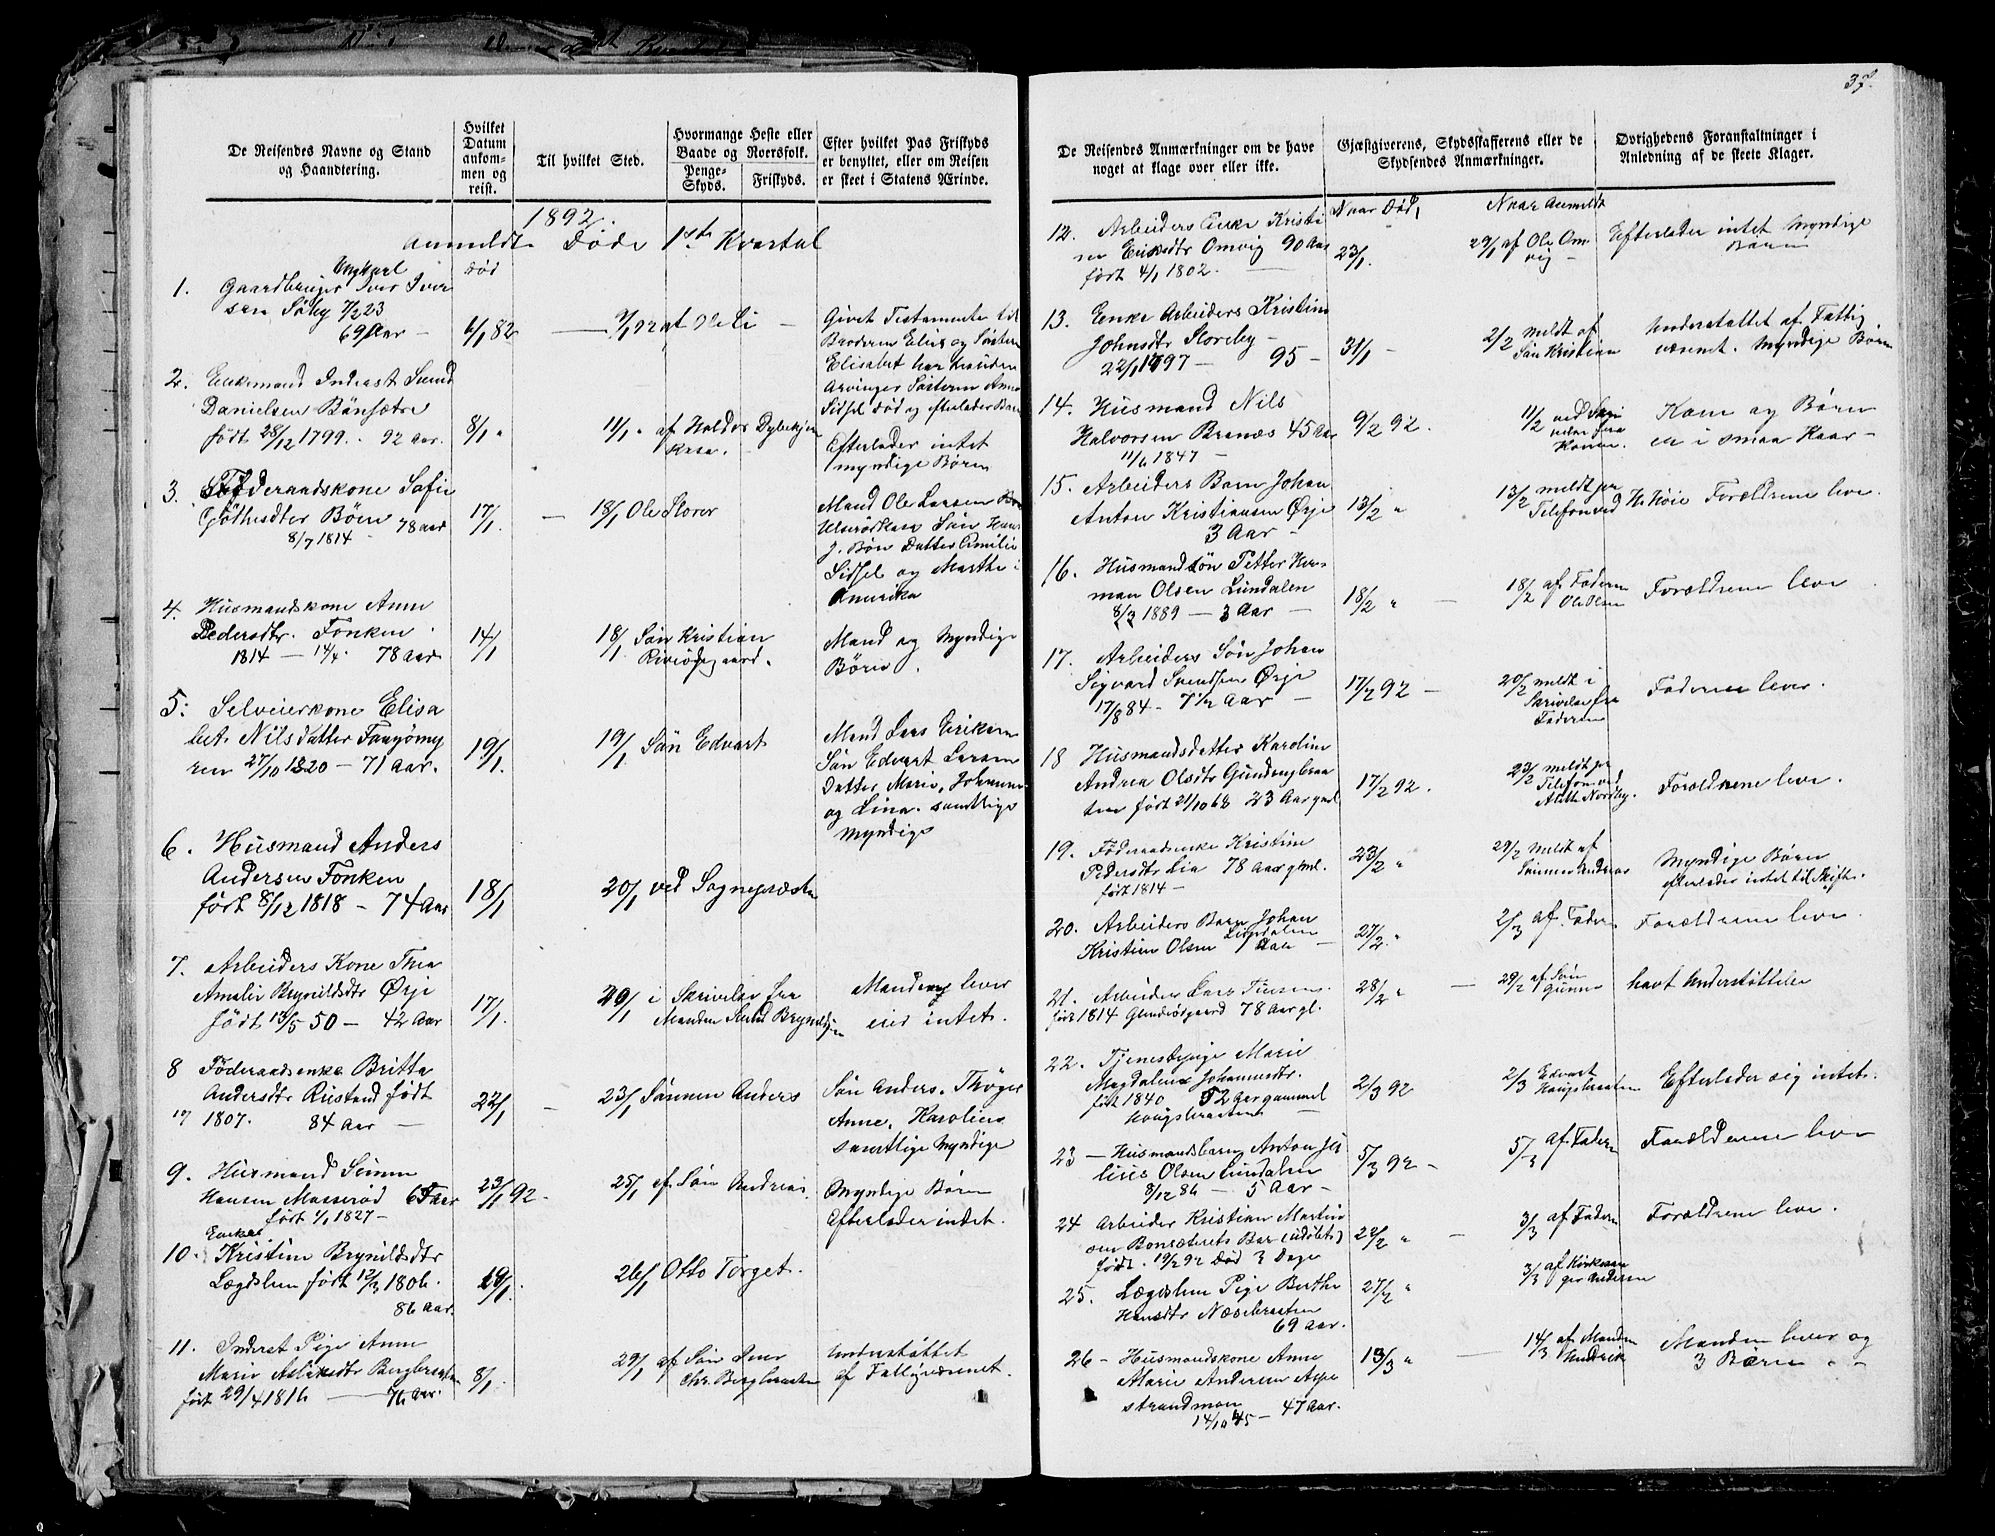 37.
De Reisendes Navne og Stand
og Haandtering.
Hvilket
Datum
ankom-
men og
reist.
Til hvilket Sted.
Hvormange Heste eller
Baade og Roersfolk.
Penge-
Skyds.
Friskyds.
Efter hvilket Pas Friskyds
er benyttet, eller om Reisen
er skeet i Statens Ærinde.
1892.
Anmeldte Døde 1ste Kvartal
Ungkarl
Død
1. Gaardbruger Iver Iver
sen Söby 7/2 23
69 Aar –
6/1 82
7/1 92 af Ole Li –
Givet Testamente til
Broderen Elius og Søsteren
Elisabet har desuden
Arvinger Søsteren Anne
Sidsel død og efterlader Barn
2. Enkemand Inderst Svend
Danielsen Bönsætre
født 28/12 1799. 92 Aar.
8/1 "
11/1 . af Haldor Dybekjen
Kasa.
Efterlader intet
myndige Børen
3. Föderaadskone Sofie
Gjöthesdter Böen 78 aar
8/7 1814 –
17/1.
18/1 Ole Storer
Mand Ole Larsen
Søn Hans
J. Böen Datter Emilie
Sidsel og Marthe i
Amerika
4. Husmandskone Anne
Pedersdtr. Fonken
1814 – 14/4. 78 Aar
14/1
18/1 Søn Kristian
Riviødegaard.
Mand og Myndige
Børen.
5: Selveierkone Elisa
bet Nils Datter Tangömy
ren 27/10 1820 – 71 Aar.
19/1.
19/1 Søn Edvart
Mand Lars Eriksen
Søn Edvart Larsen
Datter Marie, Johanne
og Lina. samtlige
Myndige
6. Husmand Anders
Andersen Fonken
født 8/12 1818 – 74 Aar
18/1
20/1 ved Sognepræsten
7. Arbeiders Kone Thea
Amalie Brynildsdtr Ørje
født 13/5 50 – 42 Aar
17/1.
29/1 i Skrivelse fra
Manden Brynildsen
Manden lever
eied intet.
8 Föderaadsenke Britta
Andersdtr Rustand født
1807. 84 Aar –
22/1
23/1 Sønnen Anders
Søn Anders. Thöger
Anne, Karoline
samtlige Myndige
9. Husmand Simen
Hansen Masserød 65 aar
født 1/1 1827 –
23/1 92 –
25/1 af Søn Andreas.
Myndige Børen
Efterlader intet.
Enke
10. Kristine Brynildsdtr
Lægdslem født 12/3 1806.
86 Aar.
19/1.
26/1 Otto Torget.
11. Inderst Pige Anne
Marie Aslaksdtr Bergbraaten
født 29/4 1816 – 76 Aar.
8/1.
29/1 af Søn
Chr. Bergbraaten
Understøttet
af Fattigvæsenet.
De Reisendes Anmærkninger om de have
noget at klage over eller ikke.
Gjæstgiverens, Skydsskafferens eller de
Skydsendes Anmærkninger.
Øvrighedens Foranstaltninger i
Anledning af de skeete Klager.
Naar Død,
Naar Anmeldt
12. Arbeiders Enke Kristi
ne Eriksdtr Omvig 90 Aar
født 4/1 1802.
23/1.
29/1 af Ole Om
vig –
Efterlader intet Myndige
Børen
13. Enke Arbeiders Kristine
Johnsdtr Storeby –
22/1 1797 – 95 –
31/1 –
2/2 meldt af
Søn Kristian
Understøttet af Fattig
væsenet. Myndige Børn
14. Husmand Nils
Halvorsen Brenæs 45 Aar
11/6 1847 –
9/2 92.
11/2 ved
fra
Konen.
Kone og Børen
er i smaa Kaar –
15. Arbeiders Barn Johan
Anton Kristiansen Ørje
3 Aar –
13/2 "
13/2 meldt pr
Telefon ved H. Høie
Forældrene leve.
16. Husmandssøn Petter Her-
man Olsen Lundalen
8/3 1889 – 3 Aar –
18/2 " –
18/2 af Faderen
Ole Olsen
Forældrene leve
17. Arbeiders Søn Johan
Sigvard Svendsen Ørje
17/8 84 – 7 1/2 Aar –
17/2 92 –
20/2 meldt i
Skrivelse fra
Faderen
Faderen lever.
18 Husmandsdatter Karoline
Andrea Olsdtr Gundengbraa
ten født 21/10 68 23 Aar gml
17/2 92.
23/2 meldt pr
Telefon ved
Nordby.
Forældrene leve.
19. Föderaadsenke Kristine
Pedersdtr Lia 78 Aar gml.
født 1814 –
23/2 "
29/2 Meldt af
Sønnen Andreas
Myndige Børen
efterlader intet til Skifte.
20. Arbeiders Barn Johan
Kristian Olsen Lundalen 1 Aar –
27/2. "
2/3 af. Fader
Forældrene leve.
21. Arbeider Lars
født 1814 78 Aar gl.
28/2 " –
29/2 af Søn
Gunne
havt Understøttelse
22. Tjenestepige Marie
Magdalena Johannesdtr.
født 1840 52 Aar gammel
Haugsbraaten –
2/3 92
2/3 Edvart
Haugsbraaten
Efterlader sig intet.
23 – Husmandsbarn Anton Ju
lius Olsen Lundalen
8/12 86 – 5 Aar –
5/3 92 –
5/3 af Fader
Forældrene leve
24 Arbeider Kristian Martin
sen Bonsæterets Bar (udöbt)
født. 19/2 92 Död 3 Dage
22/2 " –
3/3 af Fader
Forældrene leve.
25. Lægdslem Pige Berthe
Hansdtr Næsebraaten
69 Aar.
27/2 "
3/3 af Kirkesan
ger Andersen
26 – Husmandskone Anne
Marie Andersen Aspe
strandmoen
14/10 45 – 47 Aar.
13/3 "
14/3 af Manden
Hendrik
Manden lever og
3 Børen " –